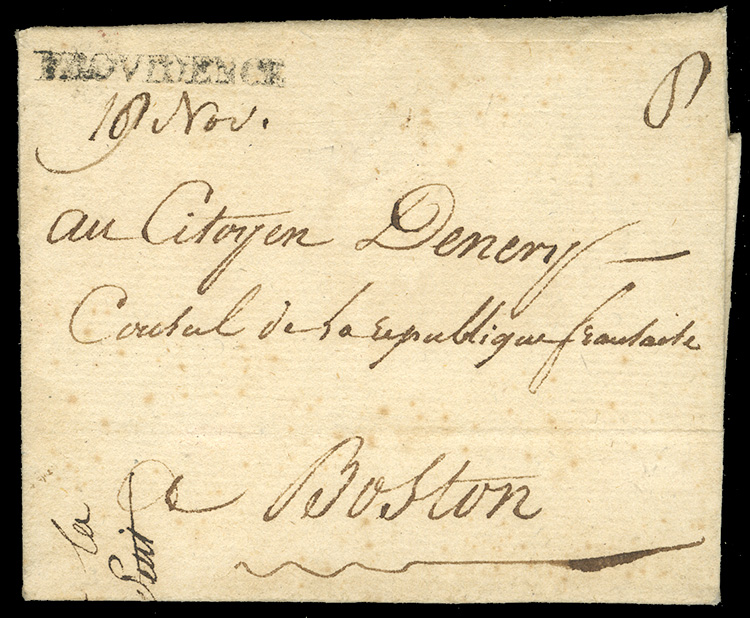 PROVIDENCE
18 Nov. 8
au Citoyen Denery
Consul de la republique francaise
a Boston
la